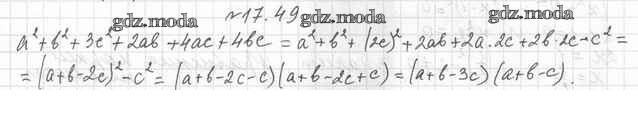 №17.49
gdz.moda gdz.moda gdz.moda
a²+b²+3c²+2ab+4ac+4bc = a²+b²+(2c)²+2ab+2a·2c+2b·2c-c² =
= (a+b-2c)²-c² = (a+b-2c-c)(a+b-2c+c) = (a+b-3c)(a+b-c).